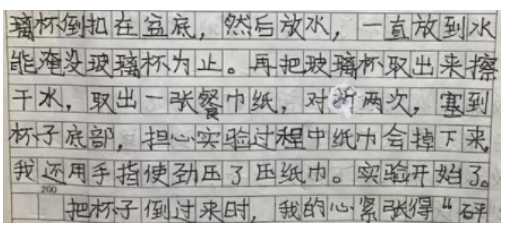 璃杯倒扣在盆底，然后放水，一直放到水
能淹没玻璃杯为止。再把玻璃杯取出来擦
干水，取出一张餐巾纸，对折两次，塞到
杯子底部，担心实验过程中纸巾会掉下来，
我还用手指使劲压了压纸巾。实验开始了。
200
把杯子倒过来时，我的心紧张得“砰